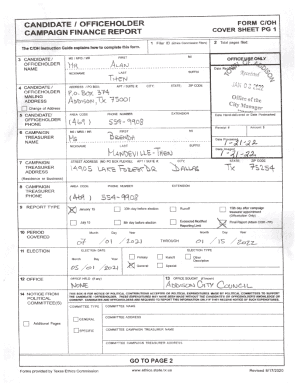 CANDIDATE / OFFICEHOLDER
CAMPAIGN FINANCE REPORT
FORM C/OH
COVER SHEET PG 1
The C/OH Instruction Guide explains how to complete this form.
1 Filer ID
2 Total pages filed:
3 CANDIDATE / OFFICEHOLDER NAME
MS / MRS / MR FIRST MI
MR ALAN
NICKNAME LAST SUFFIX
THEN
OFFICE USE ONLY
Date Received
TOWN OF ADDISON
Received
Office of the
City Manager
4 CANDIDATE / OFFICEHOLDER MAILING ADDRESS
Change of Address
ADDRESS / PO BOX; APT / SUITE #; CITY; STATE; ZIP CODE
P.O. BOX 374
ADDISON, TX 75001
5 CANDIDATE / OFFICEHOLDER PHONE
AREA CODE PHONE NUMBER EXTENSION
(469) 554-9908
Date Hand-delivered or Date Postmarked
Receipt # Amount $
6 CAMPAIGN TREASURER NAME
MS / MRS / MR FIRST MI
MS BRENDA
NICKNAME LAST SUFFIX
MANDEVILLE-THEN
Date Processed
1-21-22
Date Imaged
1-21-22
7 CAMPAIGN TREASURER ADDRESS
(Residence or Business)
STREET ADDRESS (NO PO BOX PLEASE); APT / SUITE #; CITY; STATE; ZIP CODE
14905 LAKE FOREST DR DALLAS TX 75254
8 CAMPAIGN TREASURER PHONE
AREA CODE PHONE NUMBER EXTENSION
(469) 554-9908
9 REPORT TYPE
January 15
30th day before election
Runoff
15th day after campaign treasurer appointment (Officeholder Only)
July 15
8th day before election
Exceeded Modified Reporting Limit
Final Report (Attach C/OH - FR)
10 PERIOD COVERED
Month Day Year
/ 01 / 2021 THROUGH 01 / 15 / 2022
11 ELECTION
ELECTION DATE
Month Day Year
05 / 01 / 2021
ELECTION TYPE
Primary
Runoff
Other Description
General
Special
12 OFFICE
OFFICE HELD (if any)
NONE
13 OFFICE SOUGHT (if known)
ADDISON CITY COUNCIL
14 NOTICE FROM POLITICAL COMMITTEE(S)
Additional Pages
COMMITTEE TYPE
GENERAL
SPECIFIC
COMMITTEE NAME
COMMITTEE ADDRESS
COMMITTEE CAMPAIGN TREASURER NAME
COMMITTEE CAMPAIGN TREASURER ADDRESS
GO TO PAGE 2
Forms provided by Texas Ethics Commission
www.ethics.state.tx.us
Revised 8/17/2020